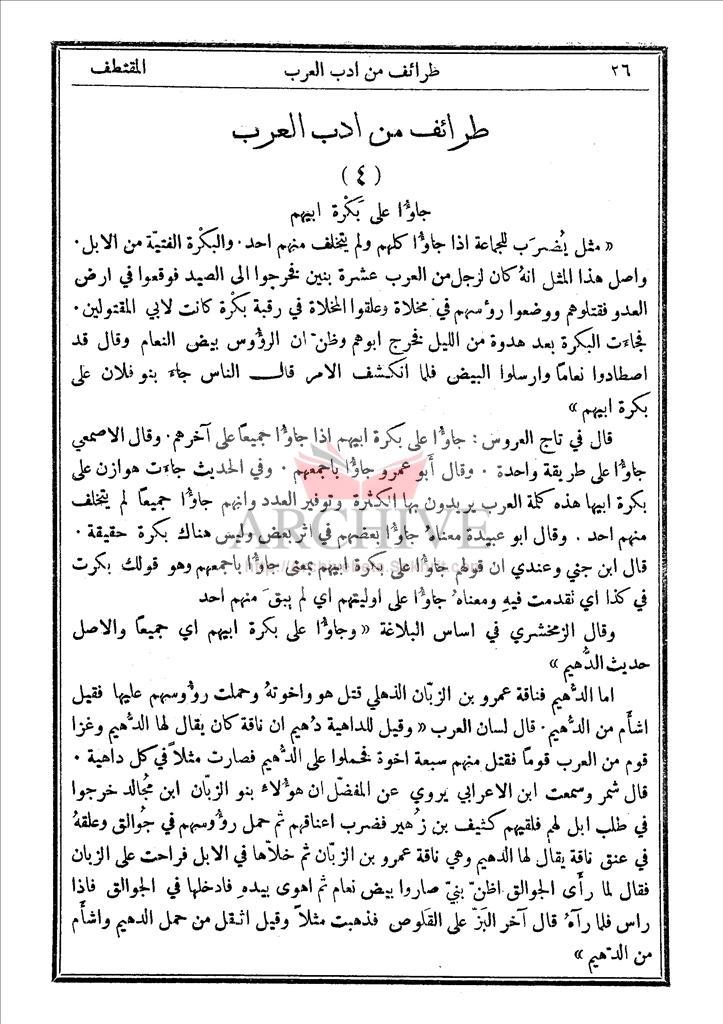 ٢٦ طرائف من ادب العرب المقتطف
طرائف من ادب العرب
(٤)
جاوُّا على بَكْرة ابيهم
« مثل يُضرَب للجماعة اذا جاوُّا كلهم ولم يتخلف منهم احد · والبكرة الفتيّة من الابل ·
واصل هذا المثل انهُ كان لرجل من العرب عشرة بنين فخرجوا الى الصيد فوقعوا في ارض
العدو فقتلوهم ووضعوا روٴسهم في مخلاة وعلقوا المخلاة في رقبة بكْرة كانت لابي المقتولين ·
فجاءت البكرة بعد هدوة من الليل فخرج ابوهم وظنّ ان الروُّوس بيض النعام وقال قد
اصطادوا نعاما وارسلوا البيض فلما انكشف الامر قال الناس جاءَ بنو فلان على
بكرة ابيهم »
قال في تاج العروس : جاوُّا على بكرة ابيهم اذا جاوُّا جميعًا على آخرهم · وقال الاصمعي
جاوُّا على طريقة واحدة · وقال أَبو عمرو جاوُّا باجمعهم · وفي الحديث جاءت هوازن على
بكرة ابيها هذه كلمة العرب يريدون بها الكثرة وتوفير العدد وانهم جاوُّا جميعًا لم يتخلف
منهم احد · وقال ابو عبيدة معناهُ جاوُّا بعضهم في اثر بعض وليس هناك بكرة حقيقة ·
قال ابن جني وعندي ان قولهم جاوُّا على بكرة ابيهم بمعنى جاوُّا باجمعهم وهو قولك بكرت
في كذا اي تقدمت فيهِ ومعناهُ جاوُّا على اوليتهم اي لم يبقَ منهم احد
وقال الزمخشري في اساس البلاغة « وجاوُّا على بكرة ابيهم اي جميعًا والاصل
حديث الدُّهيم »
اما الدُّهيم فناقة عمرو بن الزبّان الذهلي قتل هو واخوتهُ وحملت روُّوسهم عليها فقيل
اشأَم من الدُّهيم · قال لسان العرب « وقيل للداهية دُهيم ان ناقة كان يقال لها الدُّهيم وغزا
قوم من العرب قومًا فقتل منهم سبعة اخوة فحملوا على الدُّهيم فصارت مثلاً في كل داهية ·
قال شمر وسمعت ابن الاعرابي يروي عن المفضّل ان هوُلاء بنو الزبّان ابن مُجالد خرجوا
في طلب ابل لهم فلقيهم كثيف بن زُهير فضرب اعناقهم ثم حمل روُّوسهم في جُوالق وعلقهُ
في عنق ناقة يقال لها الدهيم وهي ناقة عمرو بن الزبّان ثم خلّاها في الابل فراحت على الزبان
فقال لما رأَى الجوالق اظنّ بنيّ صاروا بيض نعام ثم اهوى بيدهِ فادخلها في الجوالق فاذا
راس فلما رآهُ قال آخر البَزّ على القَلوص فذهبت مثلاً وقيل اثقل من حمل الدهيم واشأَم
من الدّهيم »
ARCHIVE